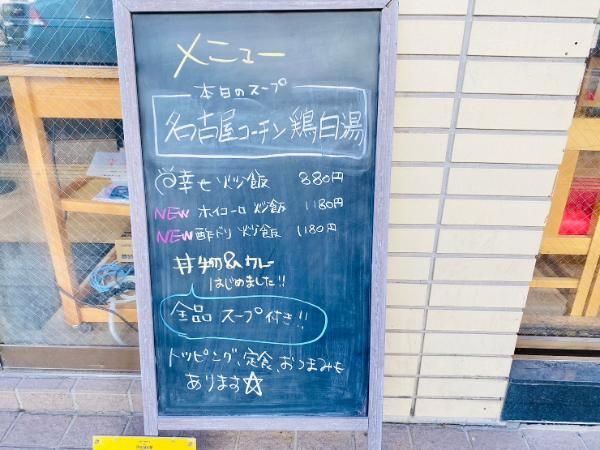 メニュー
本日のスープ
名古屋コーチン鶏白湯
幸せ炒飯 880円
NEW ホイコーロ炒飯 1180円
NEW 酢ドリ炒飯 1180円
丼物&カレー
はじめました!!
全品 スープ付き!!
トッピング、定食、おつまみも
あります☆